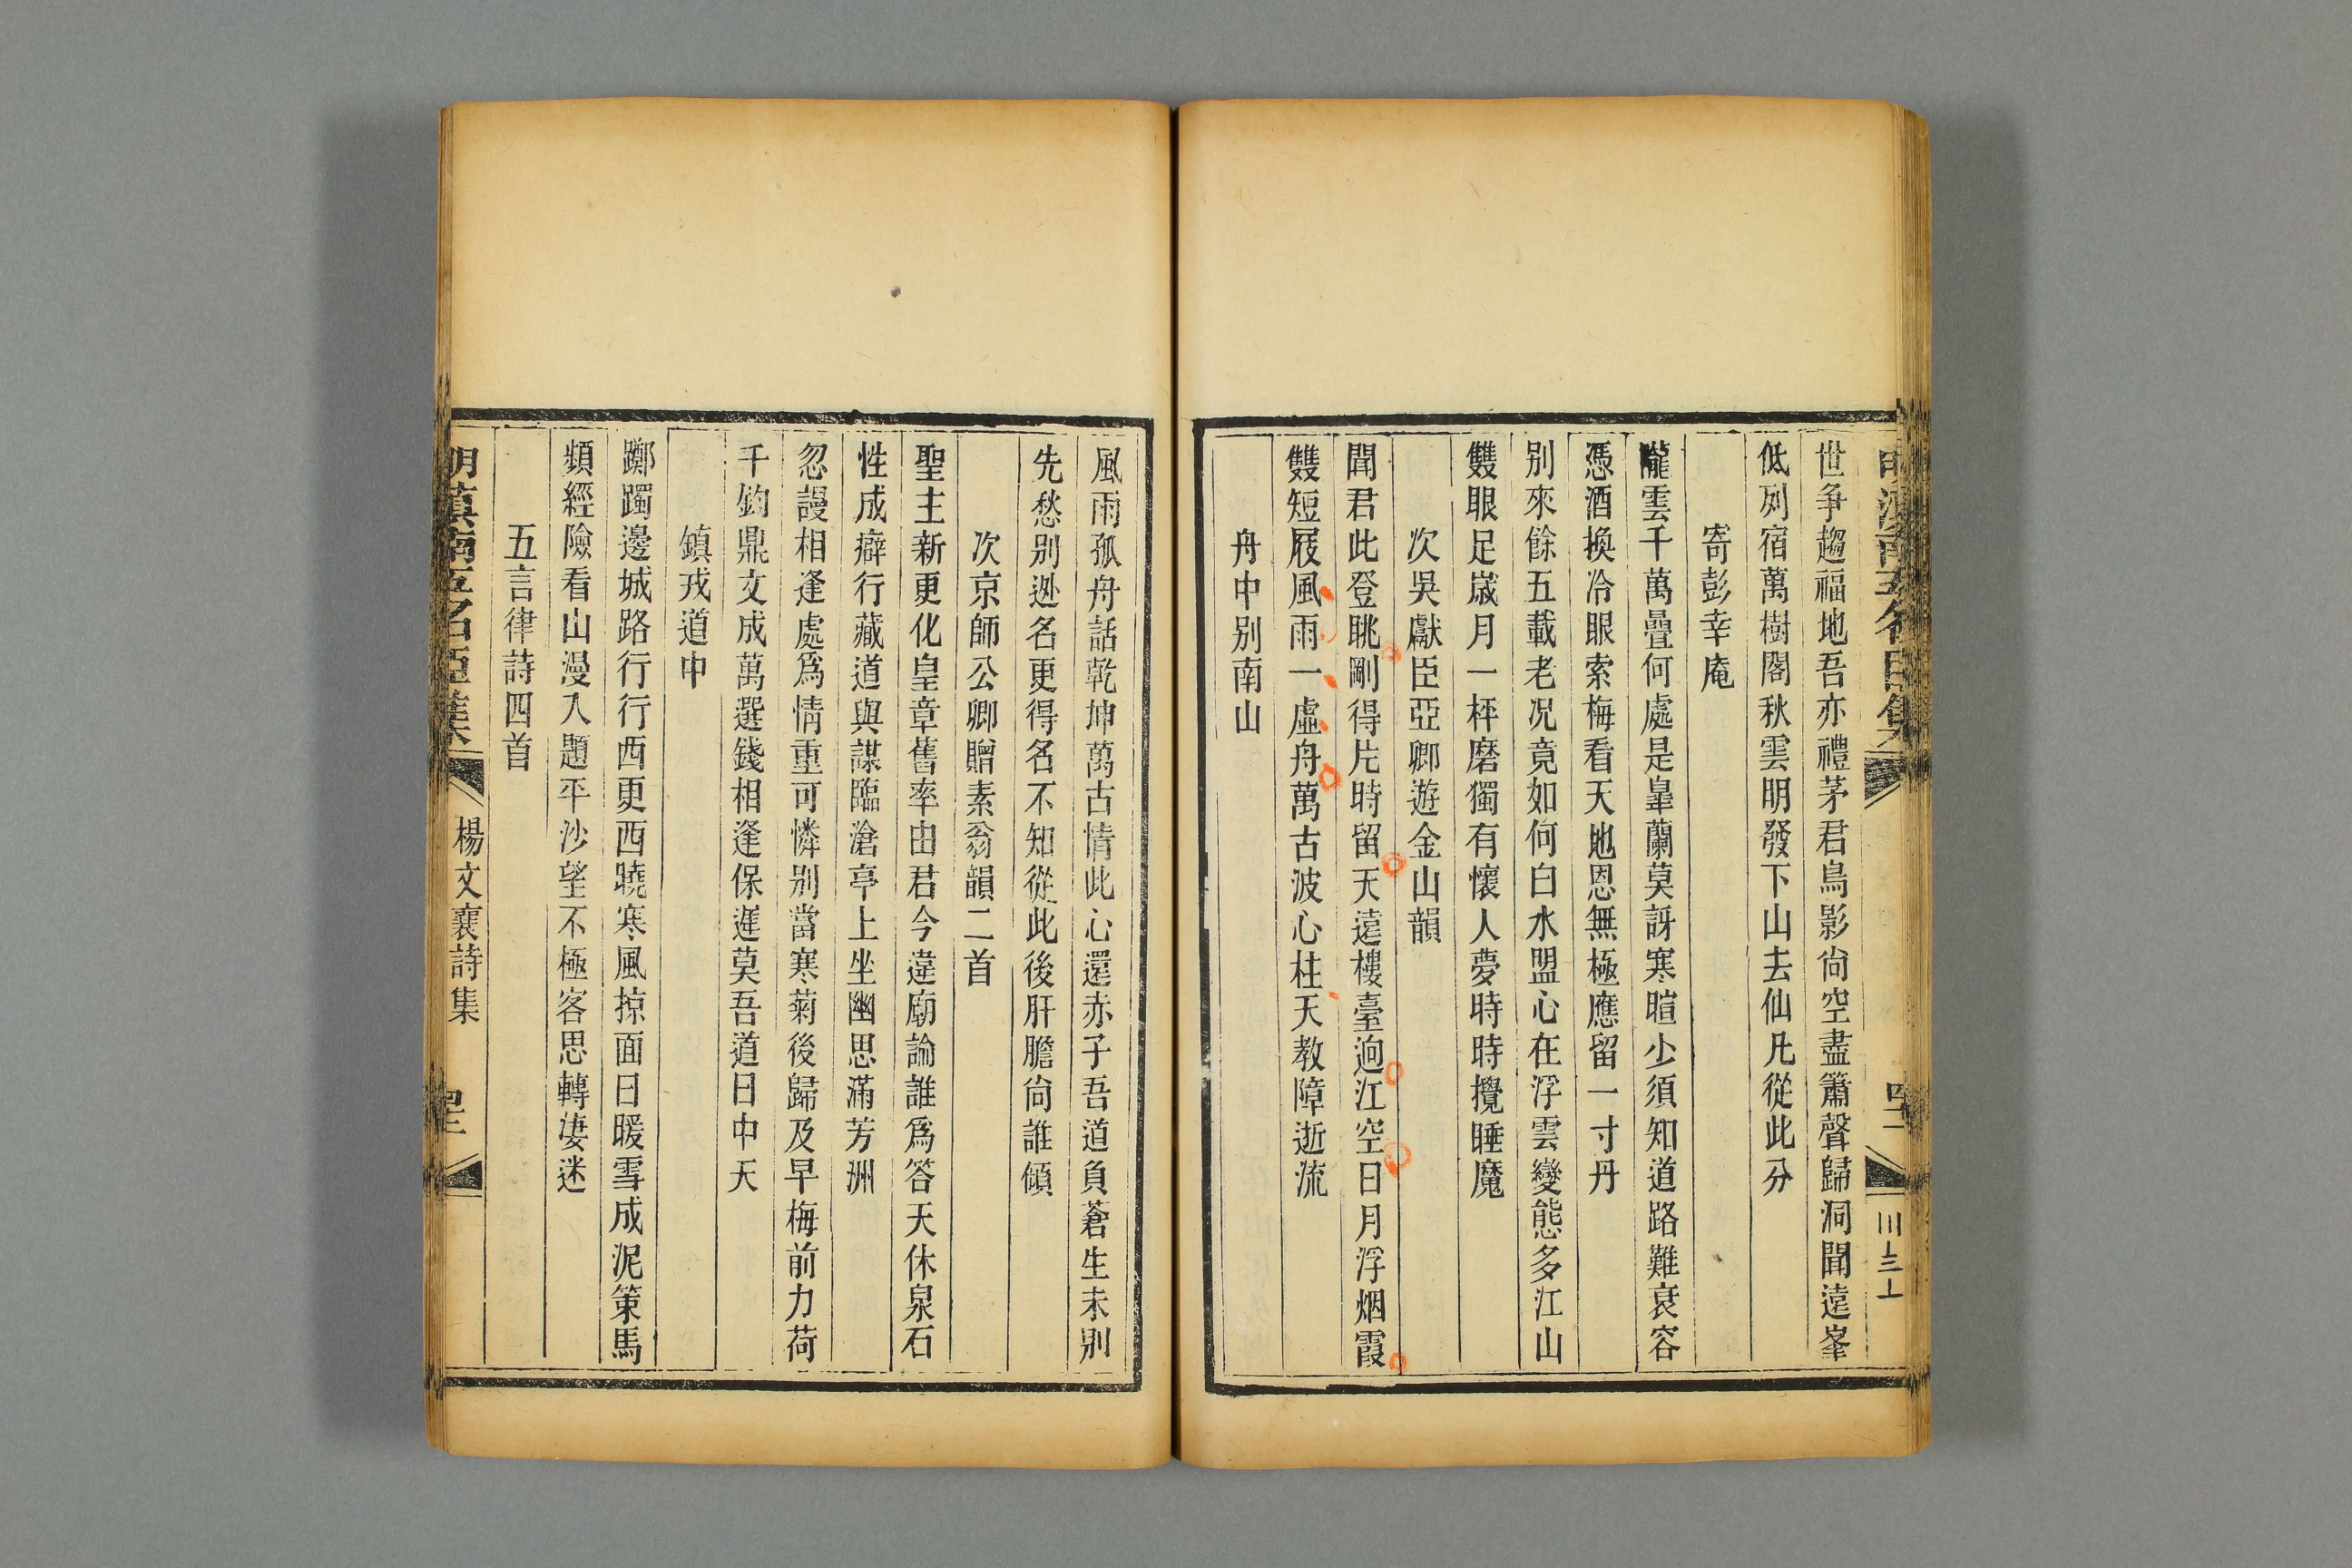 世争趨福地吾亦禮茅君鳥影尙空盡簫聲歸洞聞遠峯
低列宿萬樹閣秋雲明發下山去仙凡從此分
寄彭幸庵
隴雲千萬疊何處是皐蘭莫訝寒暄少須知道路難衰容
憑酒換冷眼索梅看天地恩無極應留一寸丹
別來餘五載老况竟如何白水盟心在浮雲變態多江山
雙眼足歲月一枰磨獨有懷人夢時時攪睡魔
次吳獻臣亞卿遊金山韻
聞君此登眺剛得片時留天遠樓臺逈江空日月浮烟霞
雙短屐風雨一虛舟萬古波心柱天教障逝流
舟中別南山
風雨孤舟話乾坤萬古情此心還赤子吾道負蒼生未別
先愁別逃名更得名不知從此後肝膽尙誰傾
次京師公卿贈素翁韻二首
聖主新更化皇章舊率由君今違廟論誰爲答天休泉石
性成癖行藏道與謀臨滄亭上坐幽思滿芳洲
忽謾相逢處爲情重可憐別當寒菊後歸及早梅前力荷
千鈞鼎文成萬選錢相逢保遲莫吾道日中天
鎮戎道中
躑躅邊城路行行西更西曉寒風掠面日暖雪成泥策馬
頻經險看山漫入題平沙望不極客思轉凄迷
五言律詩四首
明滇南五名臣集
楊文襄詩集